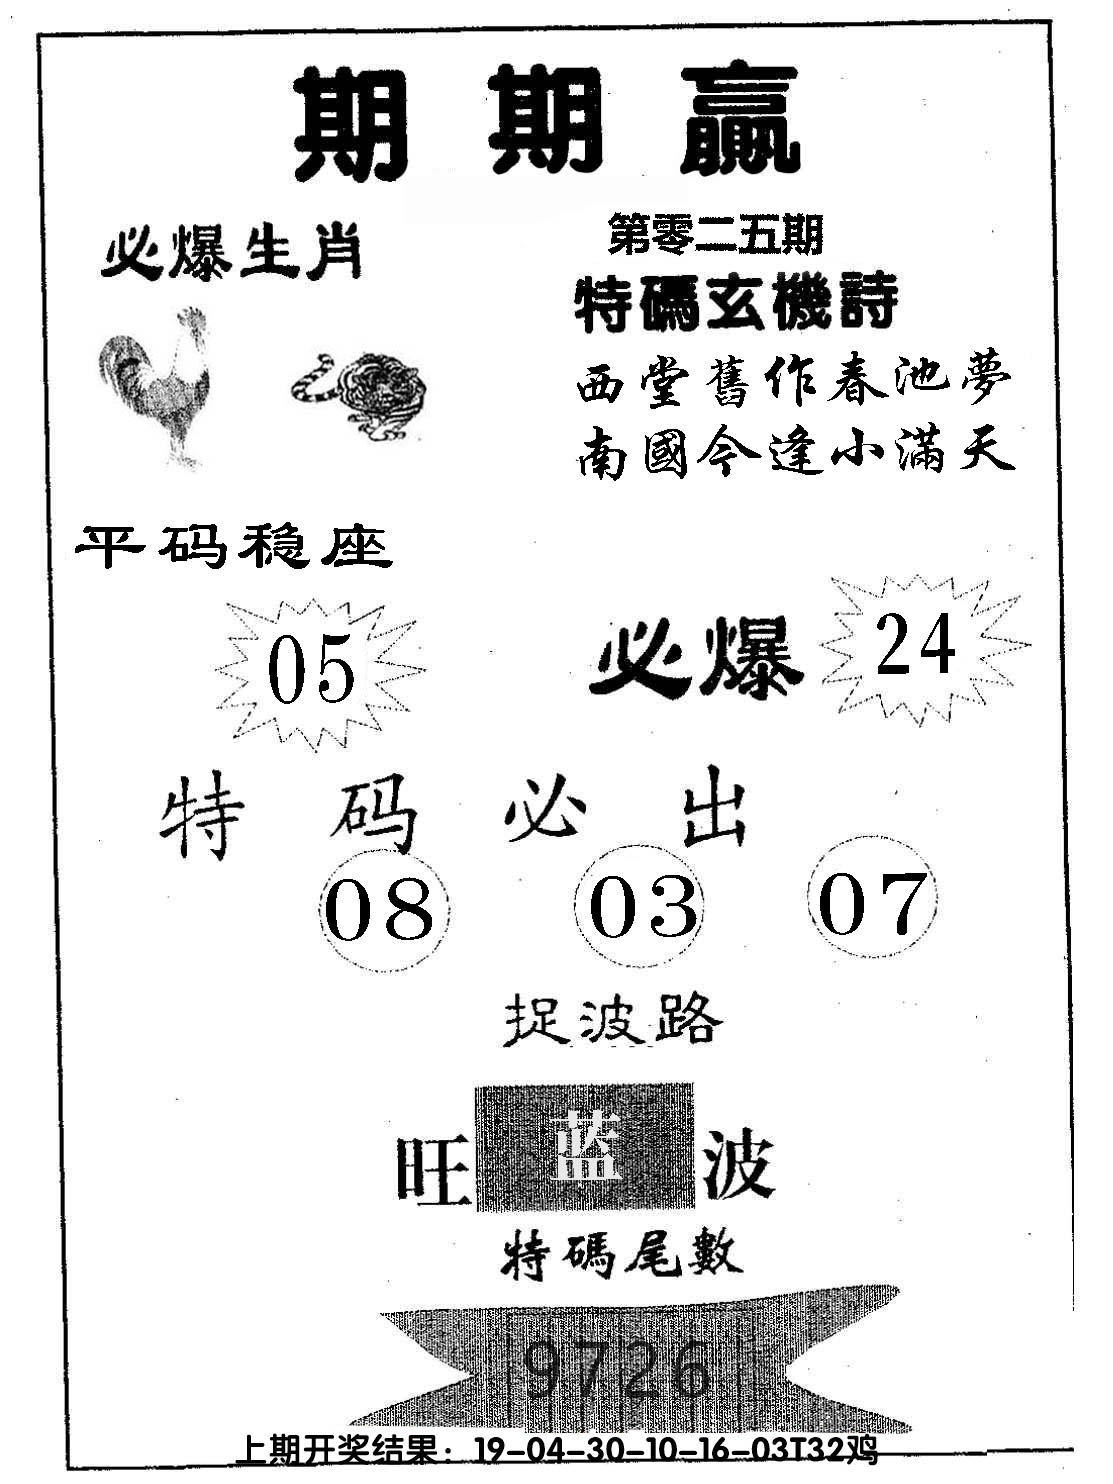 期期赢
必爆生肖
第零二五期
特碼玄機詩
西堂舊作春池夢
南國今逢小滿天
平码稳座
05
必爆 24
特码必出
08 03 07
捉波路
旺 蓝 波
特碼尾數
9726
上期开奖结果：19-04-30-10-16-03T32鸡